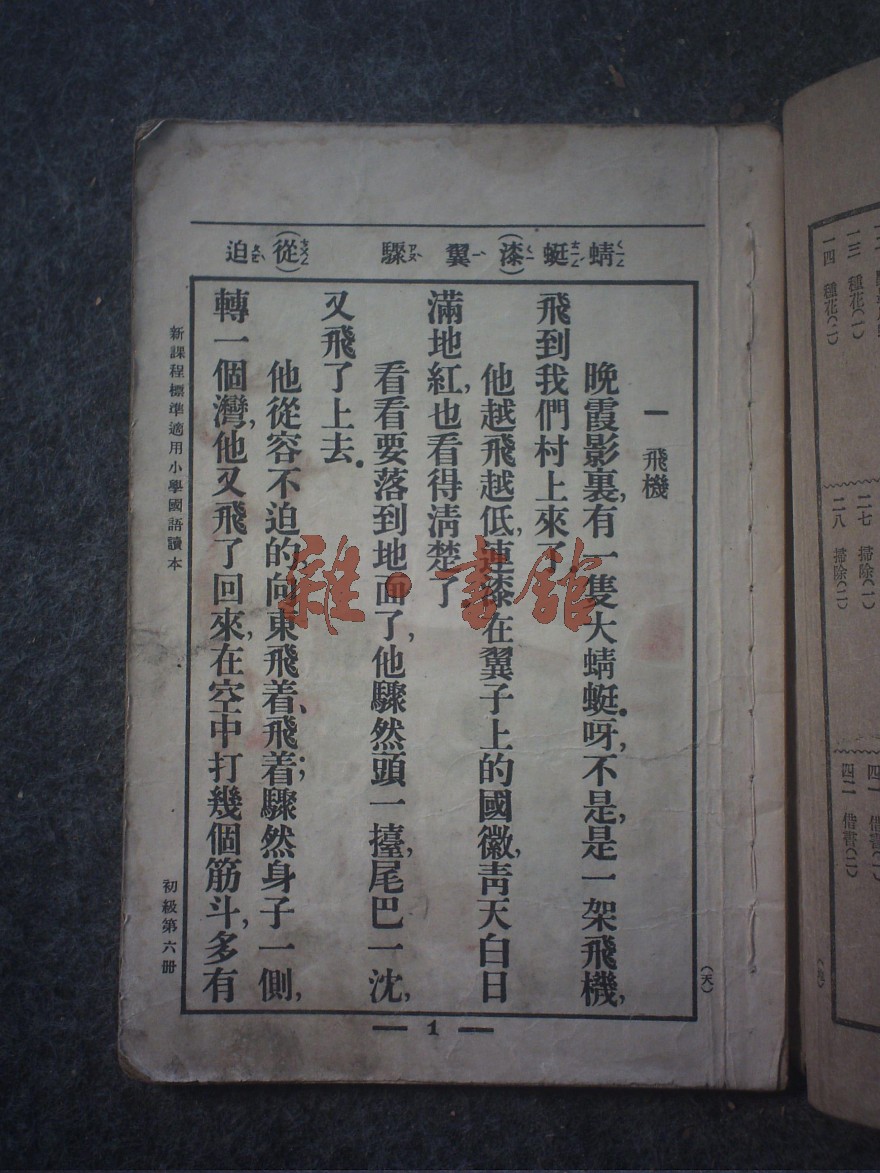 一四 種花(二)
一三 種花(一)
二八 掃除(二)
二七 掃除(一)
四二 借書(二)
四一 借書(一)
蜻ㄑㄧㄥ 蜓ㄊㄧㄥ (漆)ㄑㄧ 翼ㄧ 驟ㄗㄡ (從)ㄘㄨㄥ 迫ㄆㄛ
一 飛機
晚霞影裏,有一隻大蜻蜓。呀,不是,是一架飛機,
飛到我們村上來了。
他越飛越低,連漆在翼子上的國徽,靑天白日
滿地紅,也看得淸楚了。
看看要落到地面了,他驟然頭一擡,尾巴一沈,
又飛了上去。
他從容不迫的,向東飛着、飛着;驟然身子一側,
轉一個灣,他又飛了回來,在空中打幾個筋斗,多有
新課程標準適用小學國語讀本
初級第六册
(天)
1
雜·書館